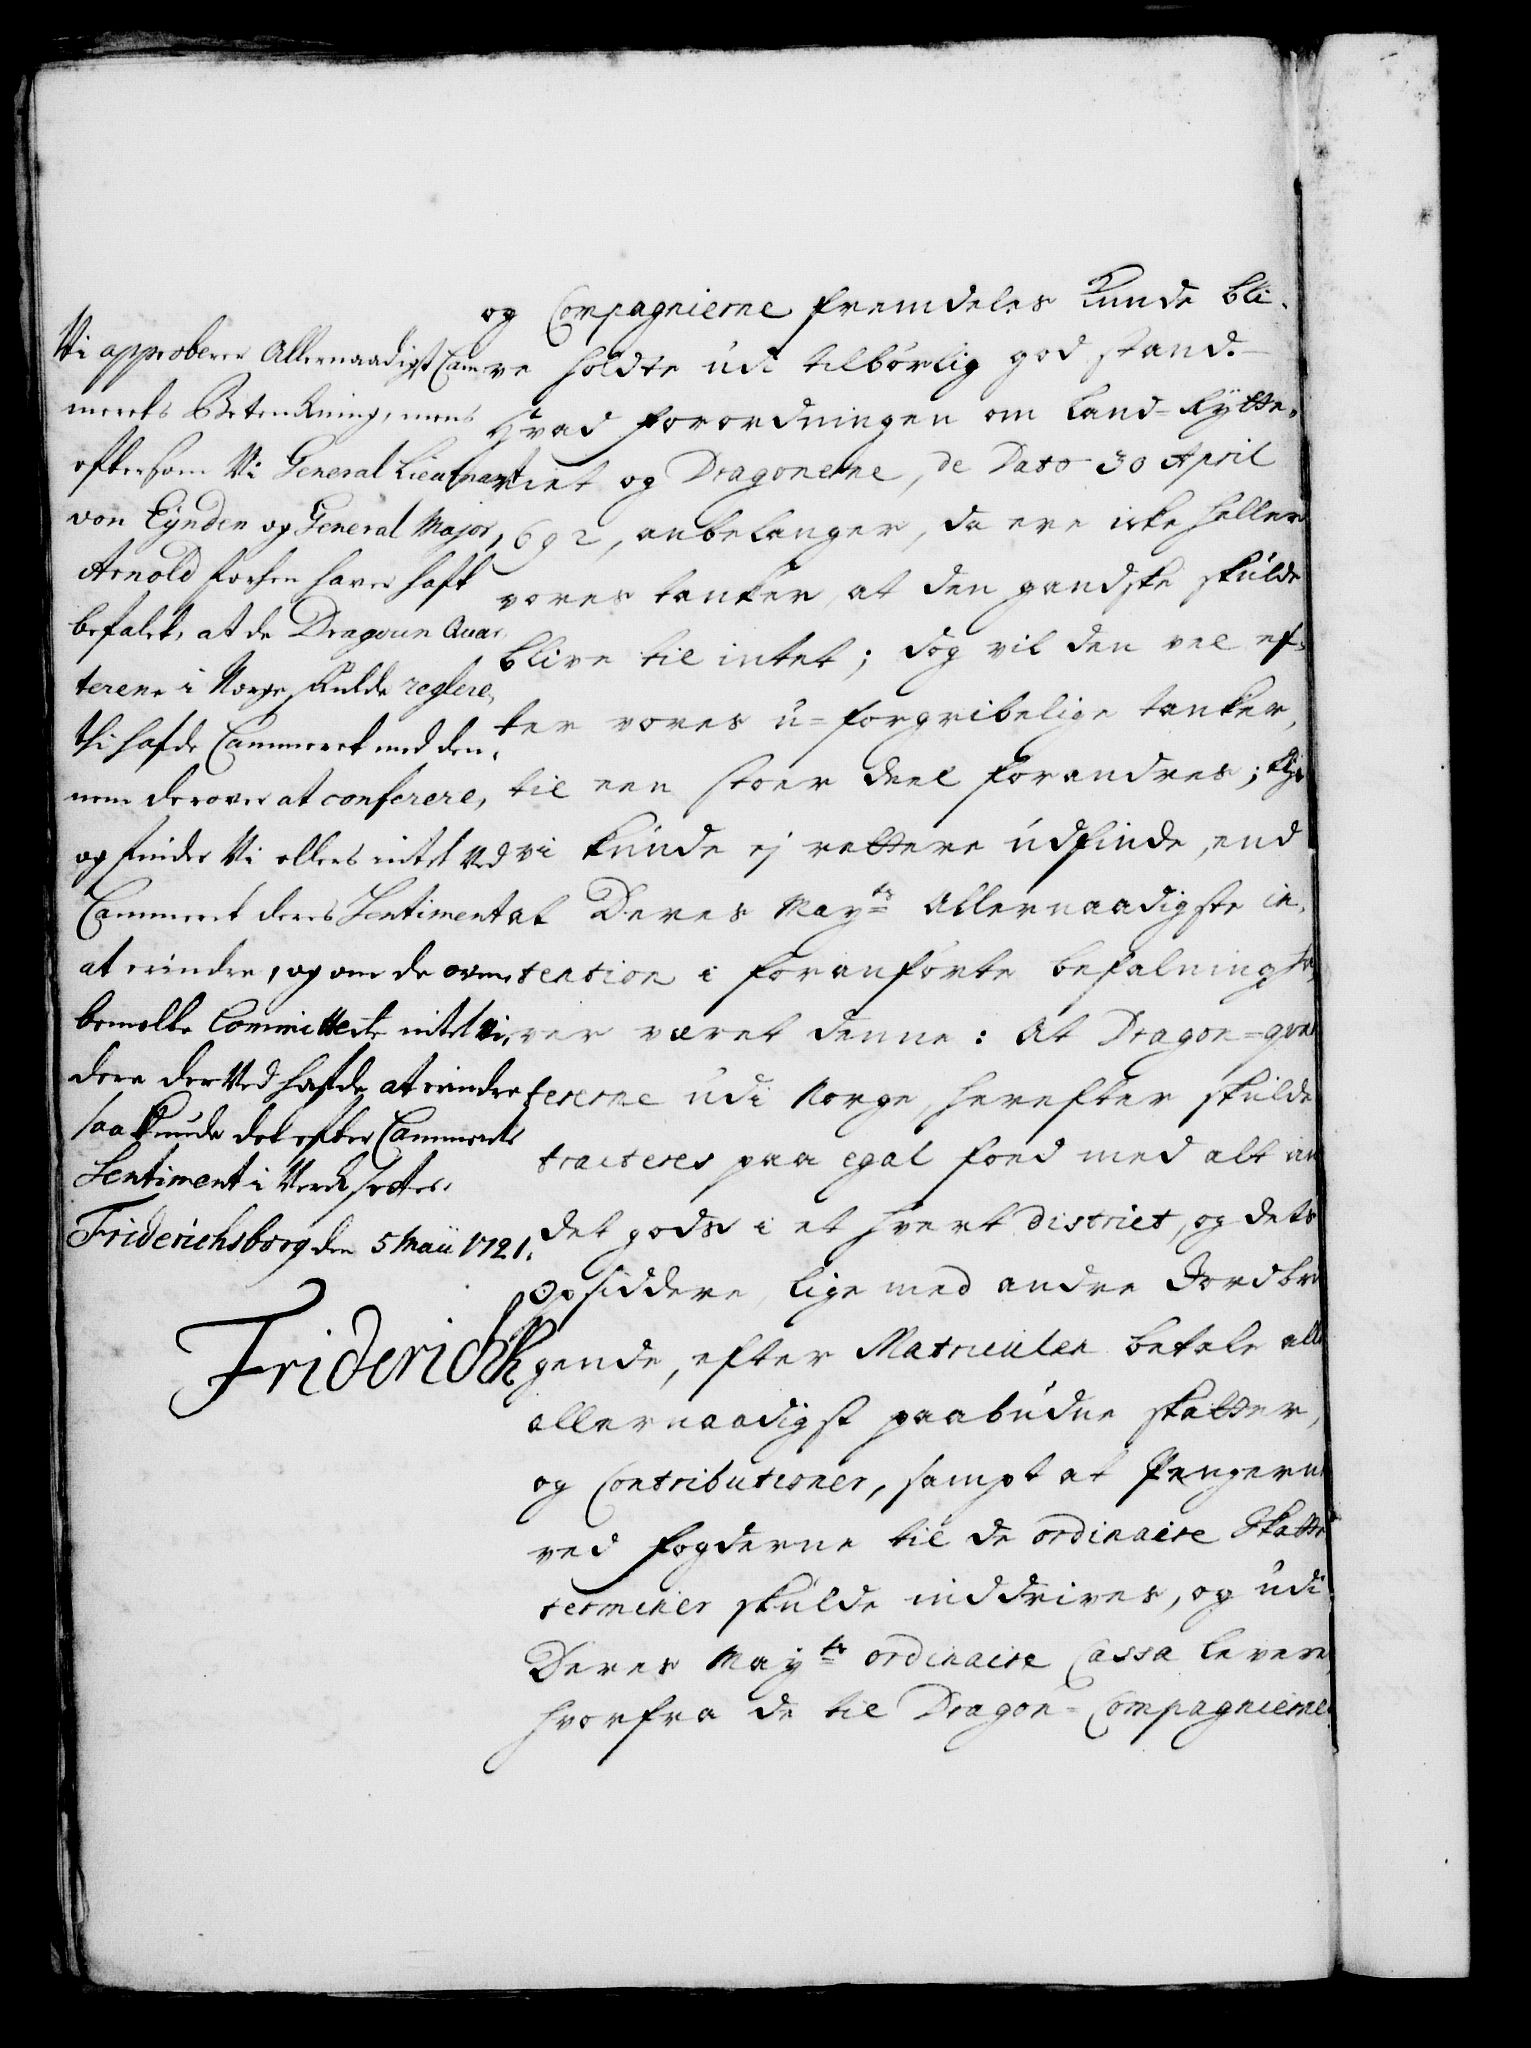 Vi approberer Allernaadigst Cam-
merets Betenkning, mens
eftersom Vi General Lieutnant
von Eÿnden og General Major
Arnold forhen haver haft
befalet, at de Dragoun Quar-
terene i Norge skulde reglere,
thi hafde Cammeret med den-
nem derover at conferere,
og finder Vi ellers intet ved
Cammeret deres Sentiment
at erindre, og om de oven-
bemelte Committerte intet vi-
dere derved hafde at erindre
saa kunde det efter Cammerets
Sentiment i Verck settes.
Friderichsborg den 5 Maii 1721.
Friderich
og Compagnierne fremdeles kunde bli-
ve holdte udi tilbørlig god stand.
Hvad forordningen om Land-Rÿtte-
riet og Dragonerne, de Dato 30 April
1692, anbelanger, da ere icke heller
vores tanker, at den gandske skulde
blive til intet; dog vil den vel ef-
ter vores u-forgribelige tanker,
til een stoer deel forandres; thi
vi kunde ej rettere udfinde, end
at Deres Mayts Allernaadigste in-
tention i foranførte befalning ha-
ver været denne: At Dragon-qvar
tererne udi Norge, herefter skulde
tracteres paa egal foed med alt an
det gods i et hvert district, og dets
Opsiddere, lige med andre Jordbru
gende, efter Matriculen betale alle
allernaadigst paabudne skatter,
og Contributioner, sampt at Pengerne
ved fogderne til de ordinaire Skatte
terminer skulde inddrives, og udi
Deres Mayts ordinaire Cassa levere
hvorfra de til Dragon-Compagnierne